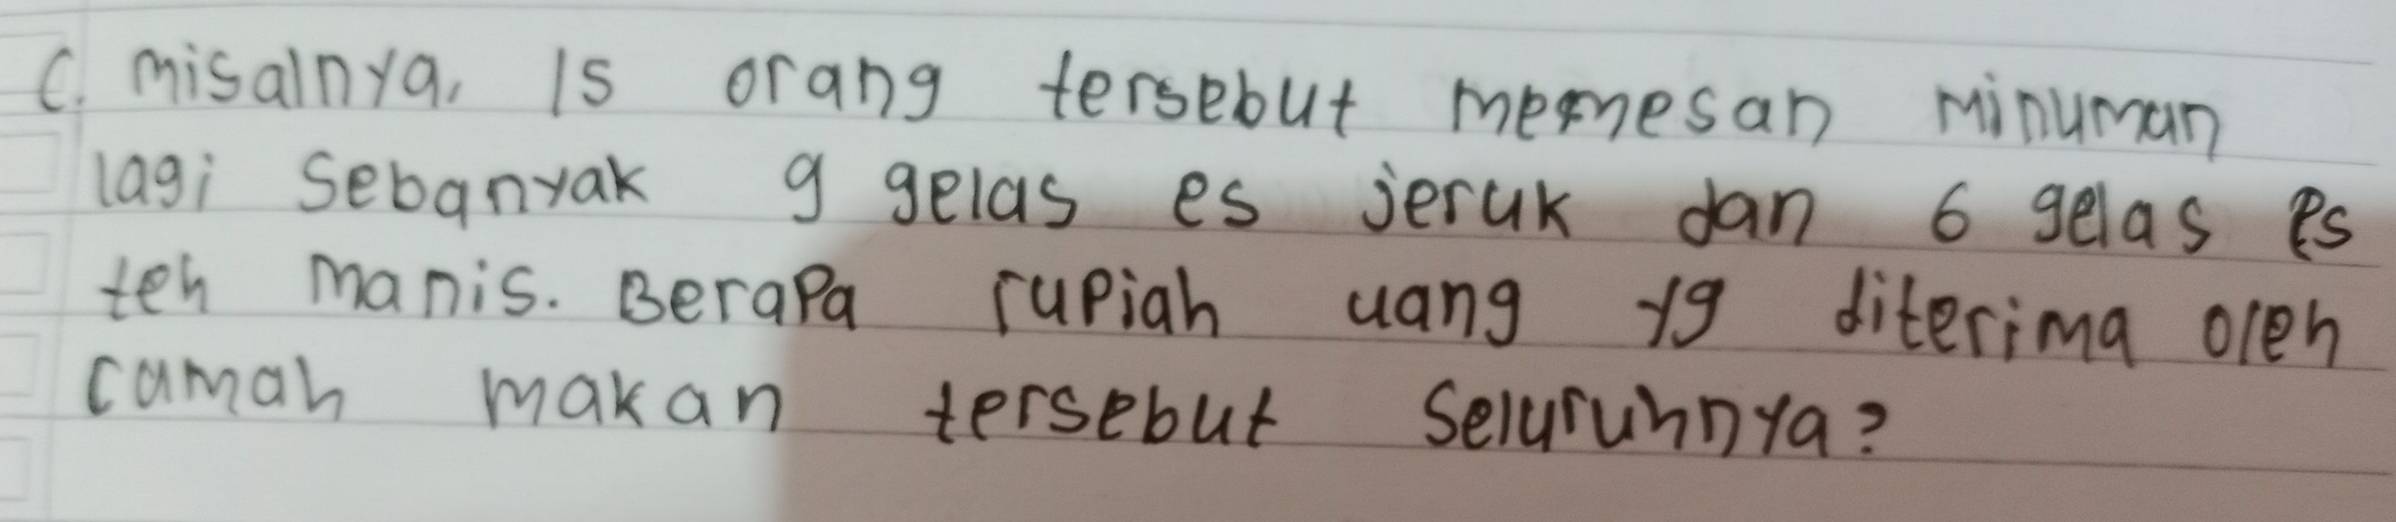 C. Misalnya, 15 orang tersebut memesan minuman
lagi sebanyak 9 gelas es jeruk dan 6 gelas es
teh manis. Berapa rupiah uang yg diterima oleh
rumah makan tersebut seluruhnya?